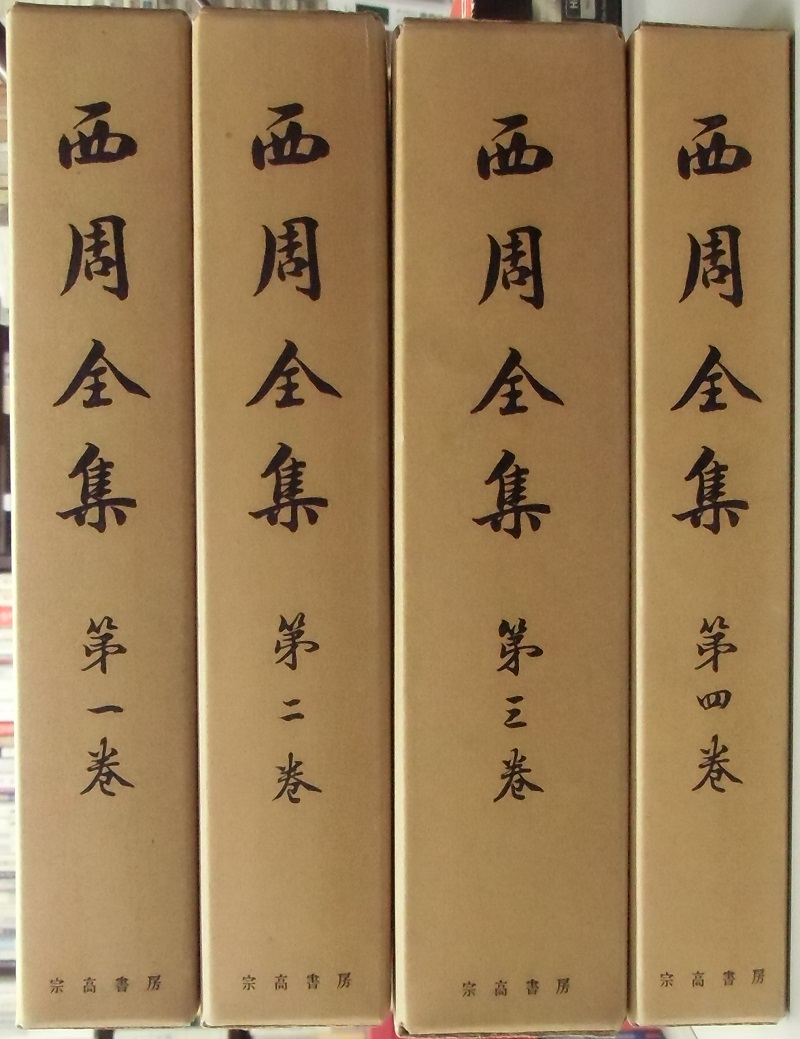 西周全集
第一巻
宗高書房
西周全集
第二巻
宗高書房
西周全集
第三巻
宗高書房
西周全集
第四巻
宗高書房